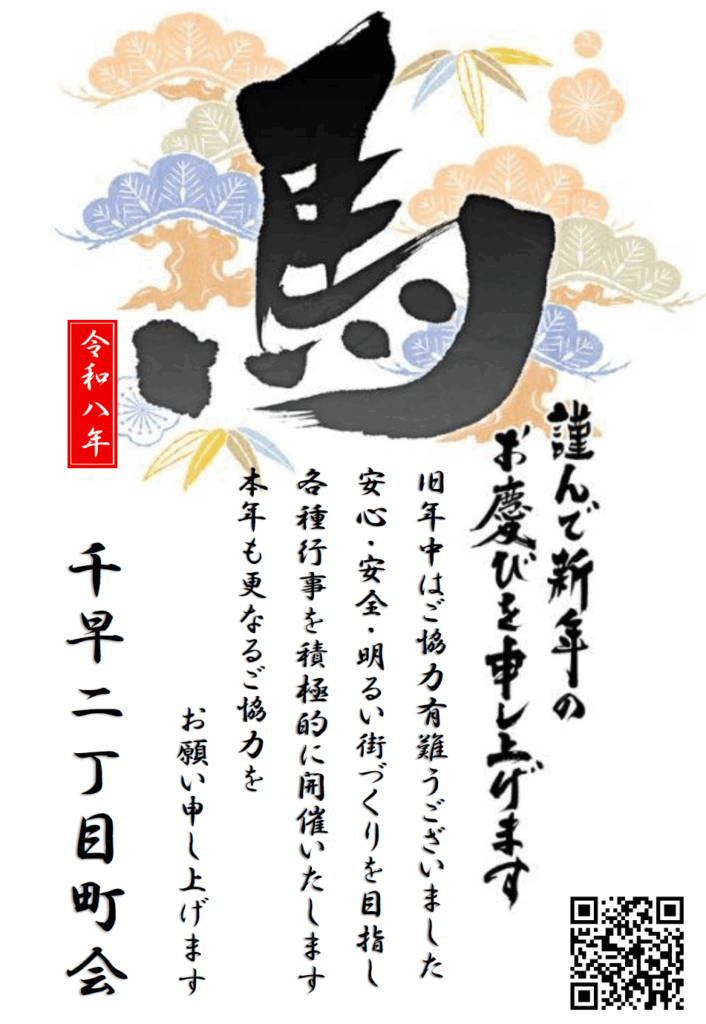 馬
謹んで新年の
お慶びを申し上げます
旧年中はご協力有難うございました
安心・安全・明るい街づくりを目指し
各種行事を積極的に開催いたします
本年も更なるご協力を
お願い申し上げます
令和八年
千早二丁目町会